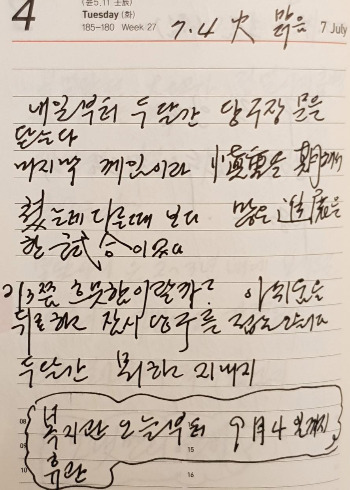 4 (윤5.11 壬辰)
Tuesday (화)
185-180 Week 27
7.4 火 맑음 7 July
내일부터 두달간 당구장 문을
닫는다
마지막 게임이라 愼重을 期해서
쳤는데 다른때 보다 많은 進展을
한 試合이었다
흐뭇함이랄까? 아쉬움을
뒤로하고 잠시 당구를 접는다
두달간 뭐하고 지내지
08 복지관 오늘부터 9月4일까지
09 15
10 휴관 16